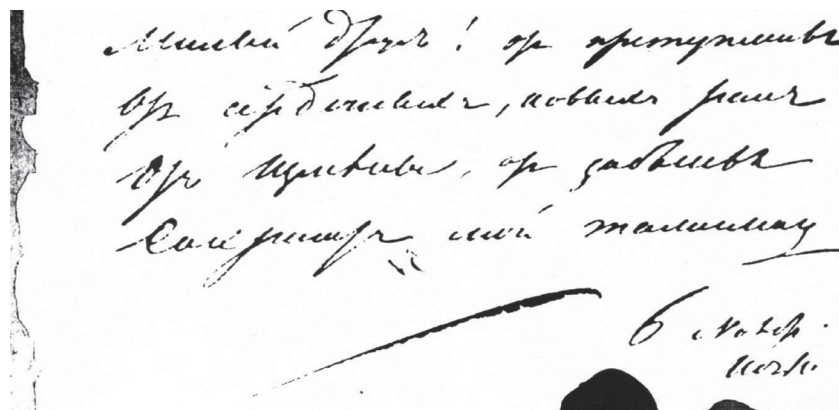 Милый другъ! отъ преступленья
Отъ сердечныхъ, новыхъ ранъ
Отъ измѣны, отъ забвенья
Сохранитъ мой талисманъ
6 Ноябр.
Ночь.